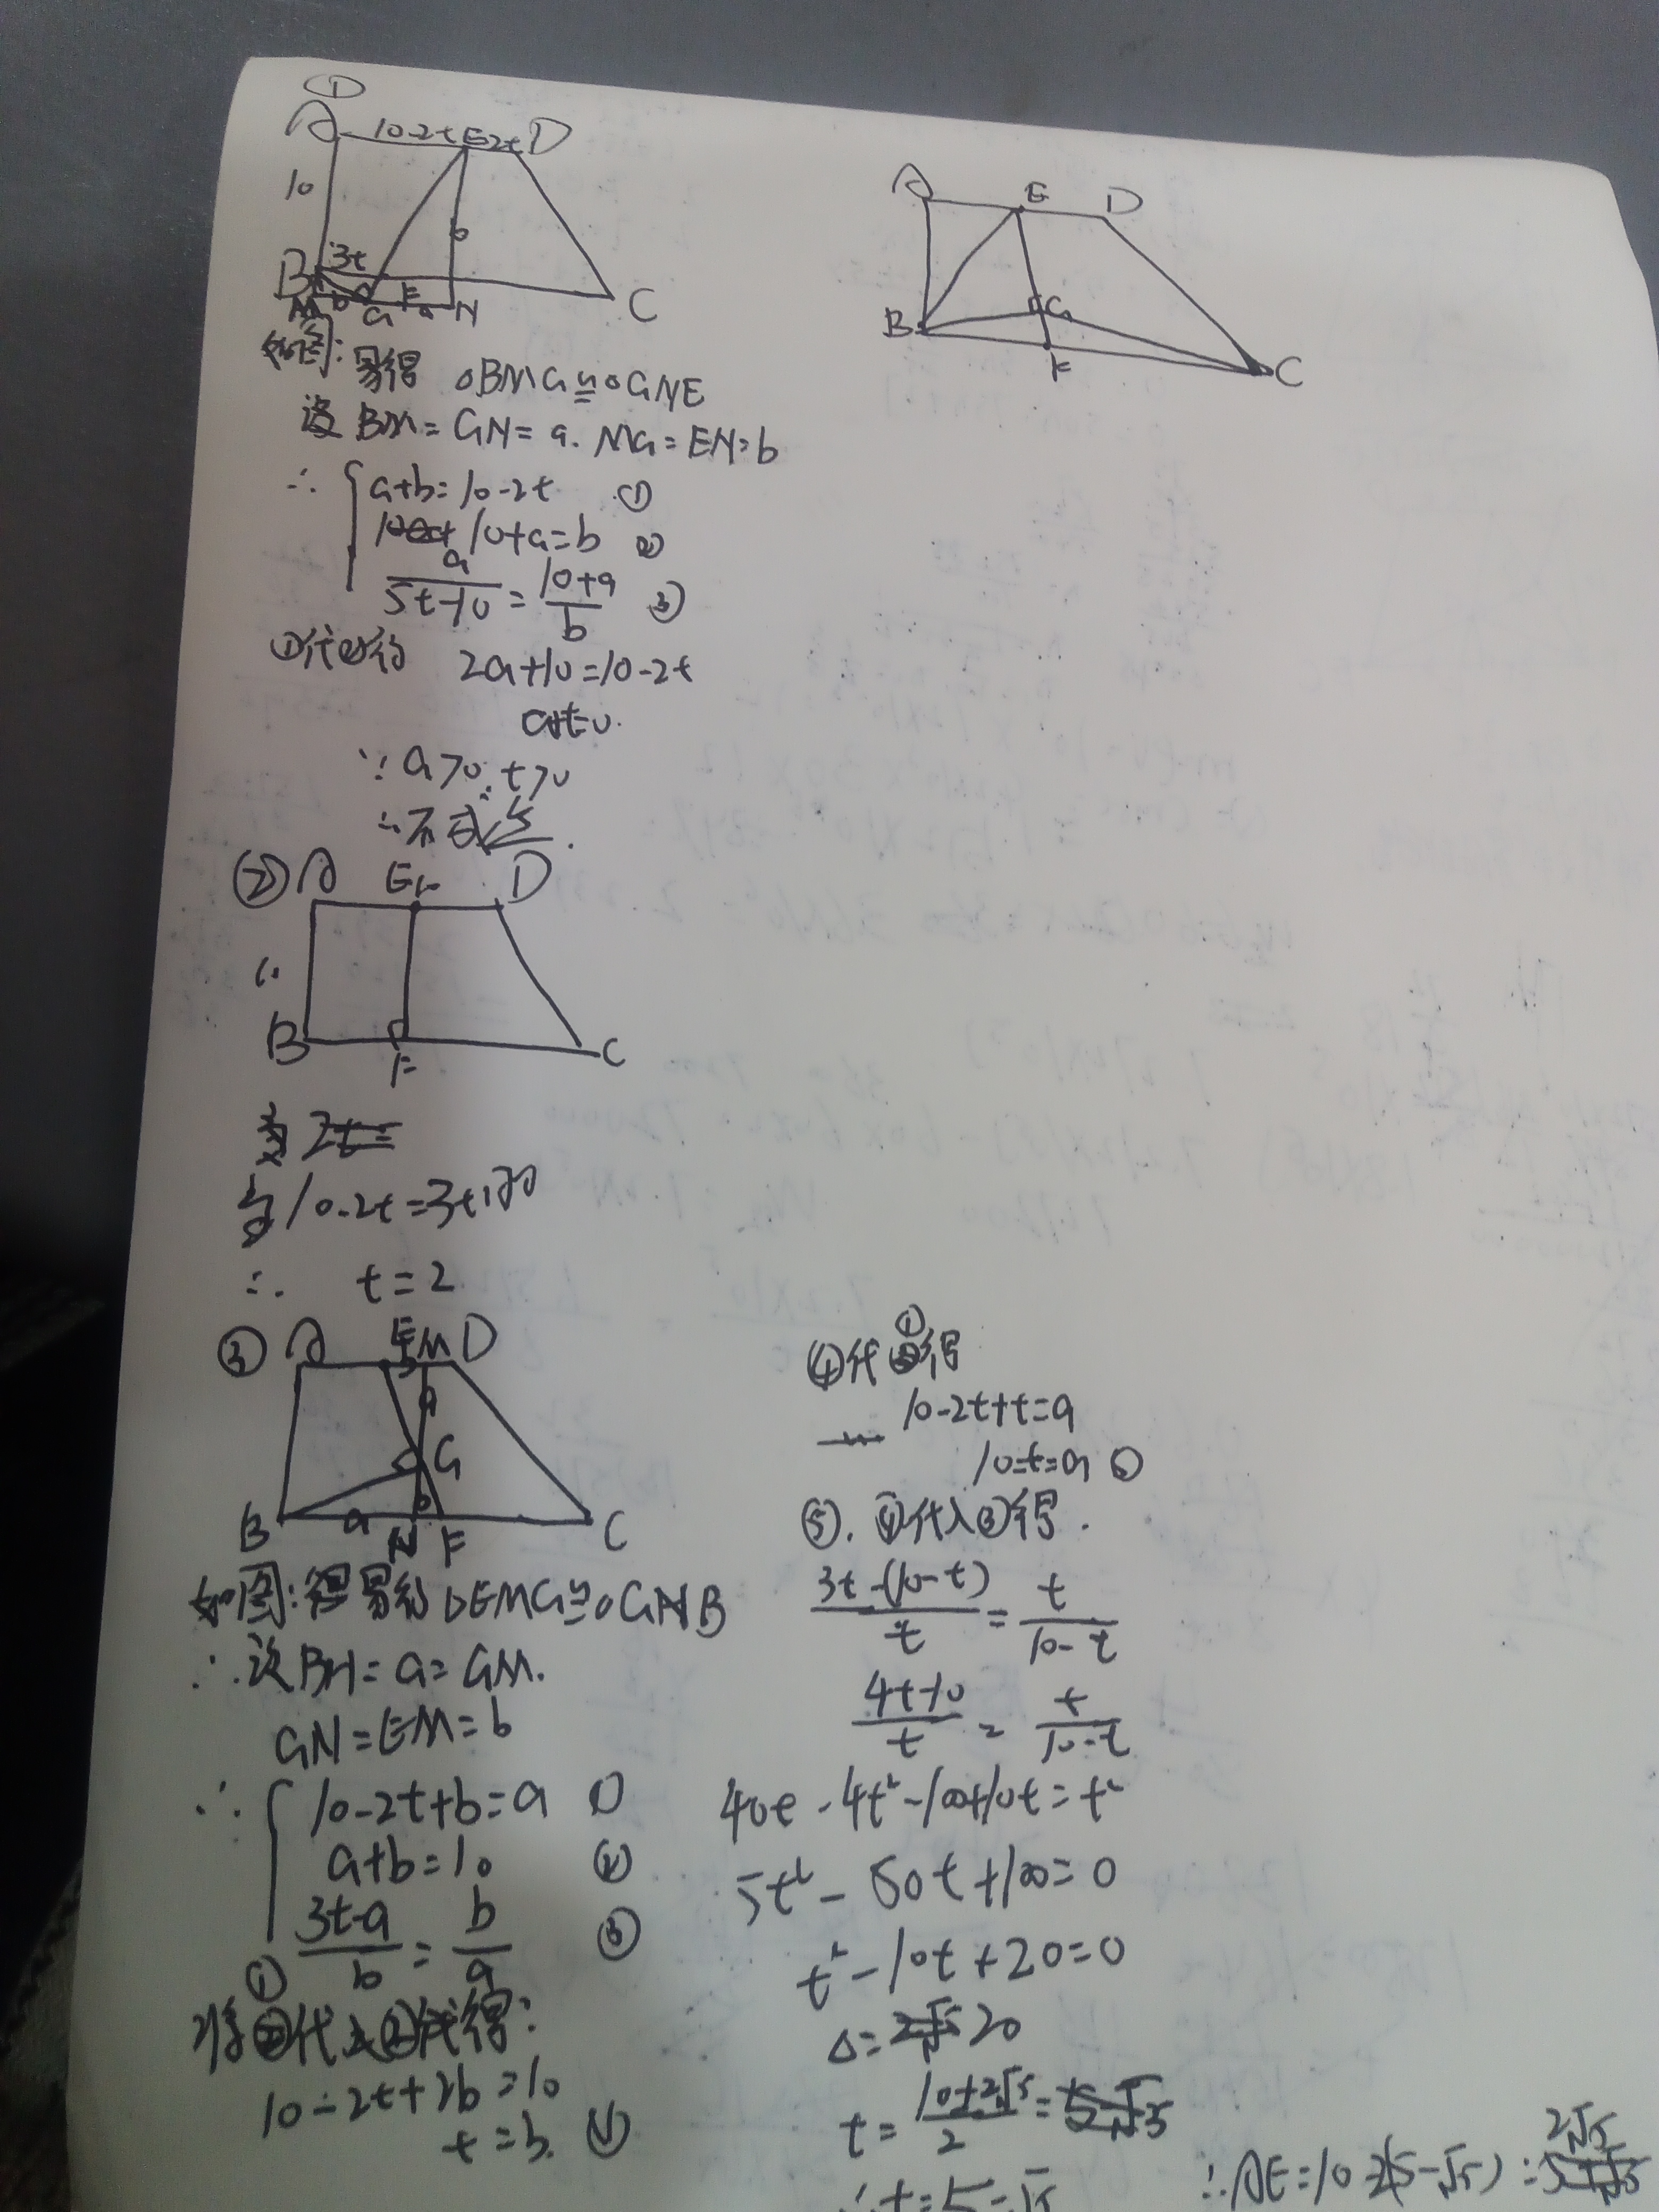 ①
A 10-2t E 2t D
10
b
B 3t
M b G F a N C
如图: 易得 △BMG≌△GNE
设 BM=GN=a. MG=EN=b
∴ a+b=10-2t ①
10+a=b ②
a/(5t-10)=(10+a)/b ③
①代②得 2a+10=10-2t
a+t=0.
∵ a>0, t>0
∴ 不成立.
② A E D
10
B F C
当 10-2t=3t时
∴ t=2
③ A E M D
a
G
b
B a N F C
如图: 易得 △EMG≌△GNB
∴ 设BN=a=GM.
GN=EM=b
∴ 10-2t+b=a ①
a+b=10 ②
(3t-a)/b=b/a ③
将①代入②得:
10-2t+2b=10
t=b. ④
A E D
G
B F C
④代①得
10-2t+t=a
10-t=a ⑤
⑤. ④代入③得.
(3t-(10-t))/t=t/(10-t)
(4t-10)/t=t/(10-t)
40t-4t²-100+10t=t²
5t²-50t+100=0
t²-10t+20=0
△=20
t=(10±2√5)/2=
∴t=5-√5
∴AE=10-2(5-√5)=2√5